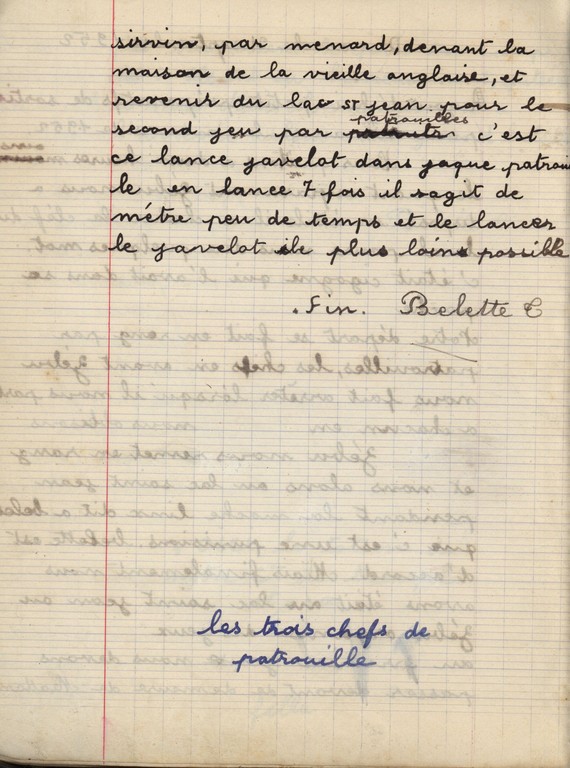 sirvin, par menard, devant la
maison de la vieille anglaise, et
revenir du lac st jean. pour le
patrouilles
second jeu par c'est
ce lance javelot dans jaque patroui
le en lance 7 fois il sagit de
métre peu de temps et le lancer
le javelot le plus loins possible
. Fin. Belette C
les trois chefs de
patrouille